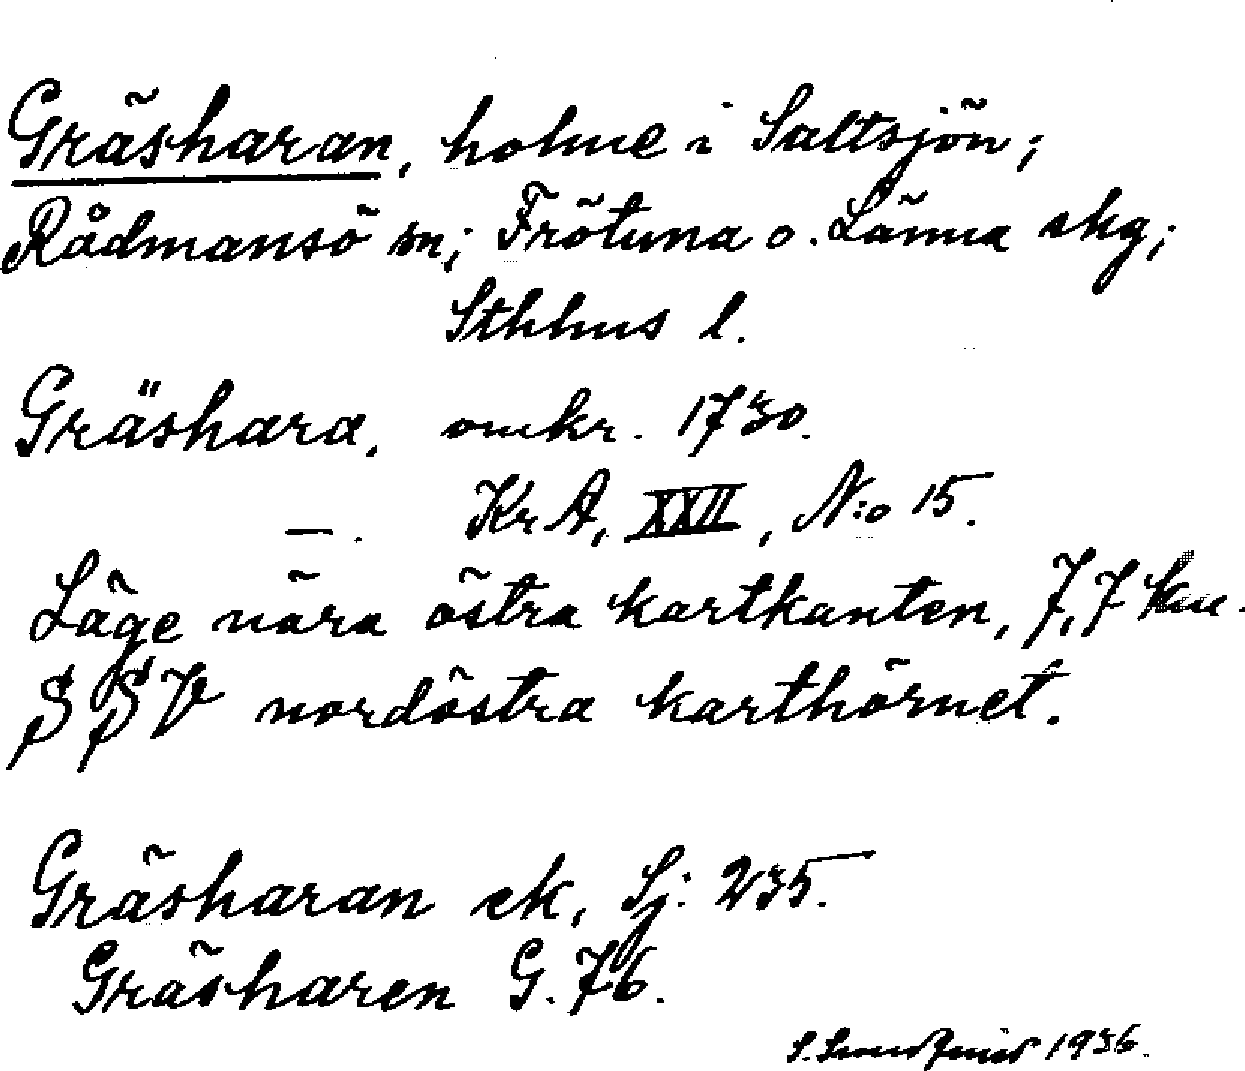 Gräsharan, holme i Saltsjön;
Rådmansö sn; Frötuna o. Länna skg;
Sthlms l.
Gräshara, omkr. 1730.
—. KrA, XXII, N:o 15.
Läge nära östra kartkanten, 7,7 km.
SSV nordöstra karthörnet.
Gräsharan ek, Sj: 235.
Gräsharen G. 76.
1936.